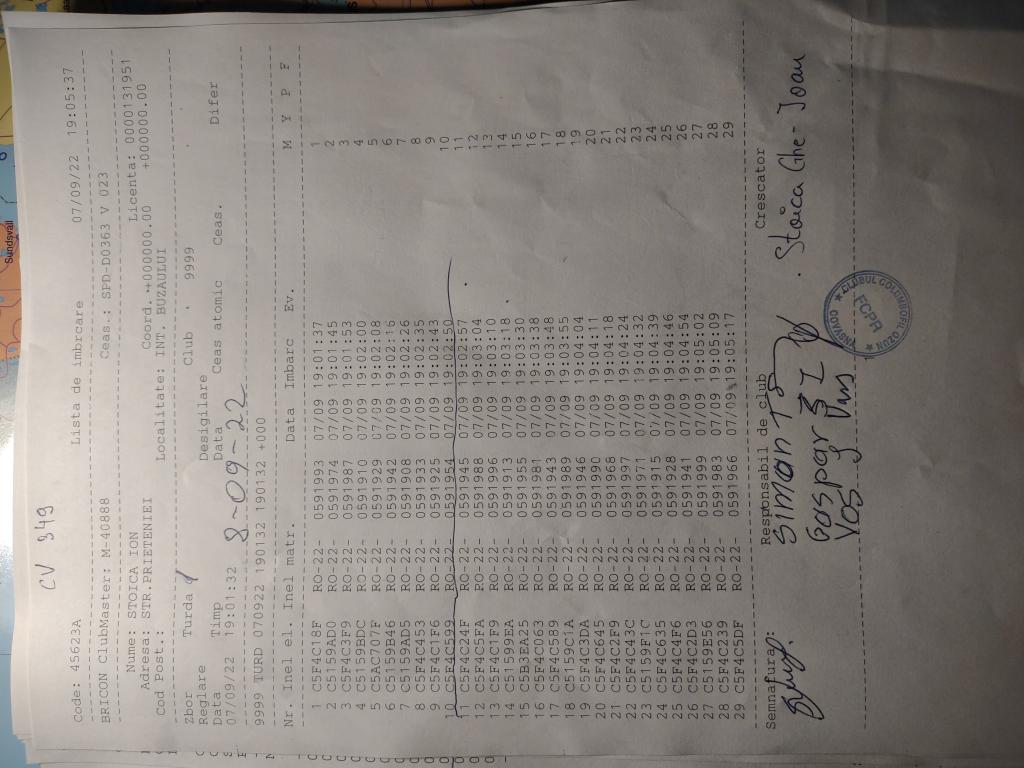 CV 349
Code: 45623A Lista de imbrcare 07/09/22 19:05:37
BRICON ClubMaster: M-40888 Ceas.: SPD-D0363 V 023
Nume: STOICA ION Licenta: 0000131951
Adresa: STR.PRIETENIEI Coord.:+000000.00 +000000.00
Cod Post.: Localitate: INT. BUZAULUI
Zbor Turda Club : 9999
Reglare Desigilare
Data Timp Data Ceas atomic Ceas. Difer
07/09/22 19:01:32 8-09-22
9999 TURD 070922 190132 190132 190132 +000
Nr. Inel el. Inel matr. Data Imbarc Ev. M Y P F
1 C5F4C18F RO-22- 0591993 07/09 19:01:37 1
2 C5159AD0 RO-22- 0591974 07/09 19:01:45 2
3 C5F4C3F9 RO-22- 0591987 07/09 19:01:53 3
4 C5159BDC RO-22- 0591910 07/09 19:02:00 4
5 C5AC707F RO-22- 0591929 07/09 19:02:08 5
6 C5159B46 RO-22- 0591942 07/09 19:02:16 6
7 C5159AD5 RO-22- 0591908 07/09 19:02:26 7
8 C5F4C453 RO-22- 0591933 07/09 19:02:35 8
9 C5F4C1F6 RO-22- 0591925 07/09 19:02:43 9
10 C5F4C599 RO-22- 0591954 07/09 19:02:50 10
11 C5F4C24F RO-22- 0591945 07/09 19:02:57 11
12 C5F4C5FA RO-22- 0591988 07/09 19:03:04 12
13 C5F4C1F9 RO-22- 0591996 07/09 19:03:10 13
14 C51599EA RO-22- 0591913 07/09 19:03:18 14
15 C5B3EA25 RO-22- 0591955 07/09 19:03:30 15
16 C5F4C063 RO-22- 0591981 07/09 19:03:38 16
17 C5F4C589 RO-22- 0591943 07/09 19:03:48 17
18 C5159C1A RO-22- 0591989 07/09 19:03:55 18
19 C5F4C3DA RO-22- 0591946 07/09 19:04:04 19
20 C5F4C645 RO-22- 0591990 07/09 19:04:11 20
21 C5F4C2F9 RO-22- 0591968 07/09 19:04:18 21
22 C5F4C43C RO-22- 0591997 07/09 19:04:24 22
23 C5159F1C RO-22- 0591977 07/09 19:04:32 23
24 C5F4C635 RO-22- 0591915 07/09 19:04:39 24
25 C5F4C4F6 RO-22- 0591928 07/09 19:04:46 25
26 C5F4C2D3 RO-22- 0591941 07/09 19:04:54 26
27 C5159E56 RO-22- 0591999 07/09 19:05:02 27
28 C5F4C239 RO-22- 0591983 07/09 19:05:09 28
29 C5F4C5DF RO-22- 0591966 07/09 19:05:17 29
Semnatura: Responsabil de club Crescator
Siman Stoica Ghe-Ioan
Gaspar
CLUBUL COLUMBOFIL OZON
COVASNA
FCPR